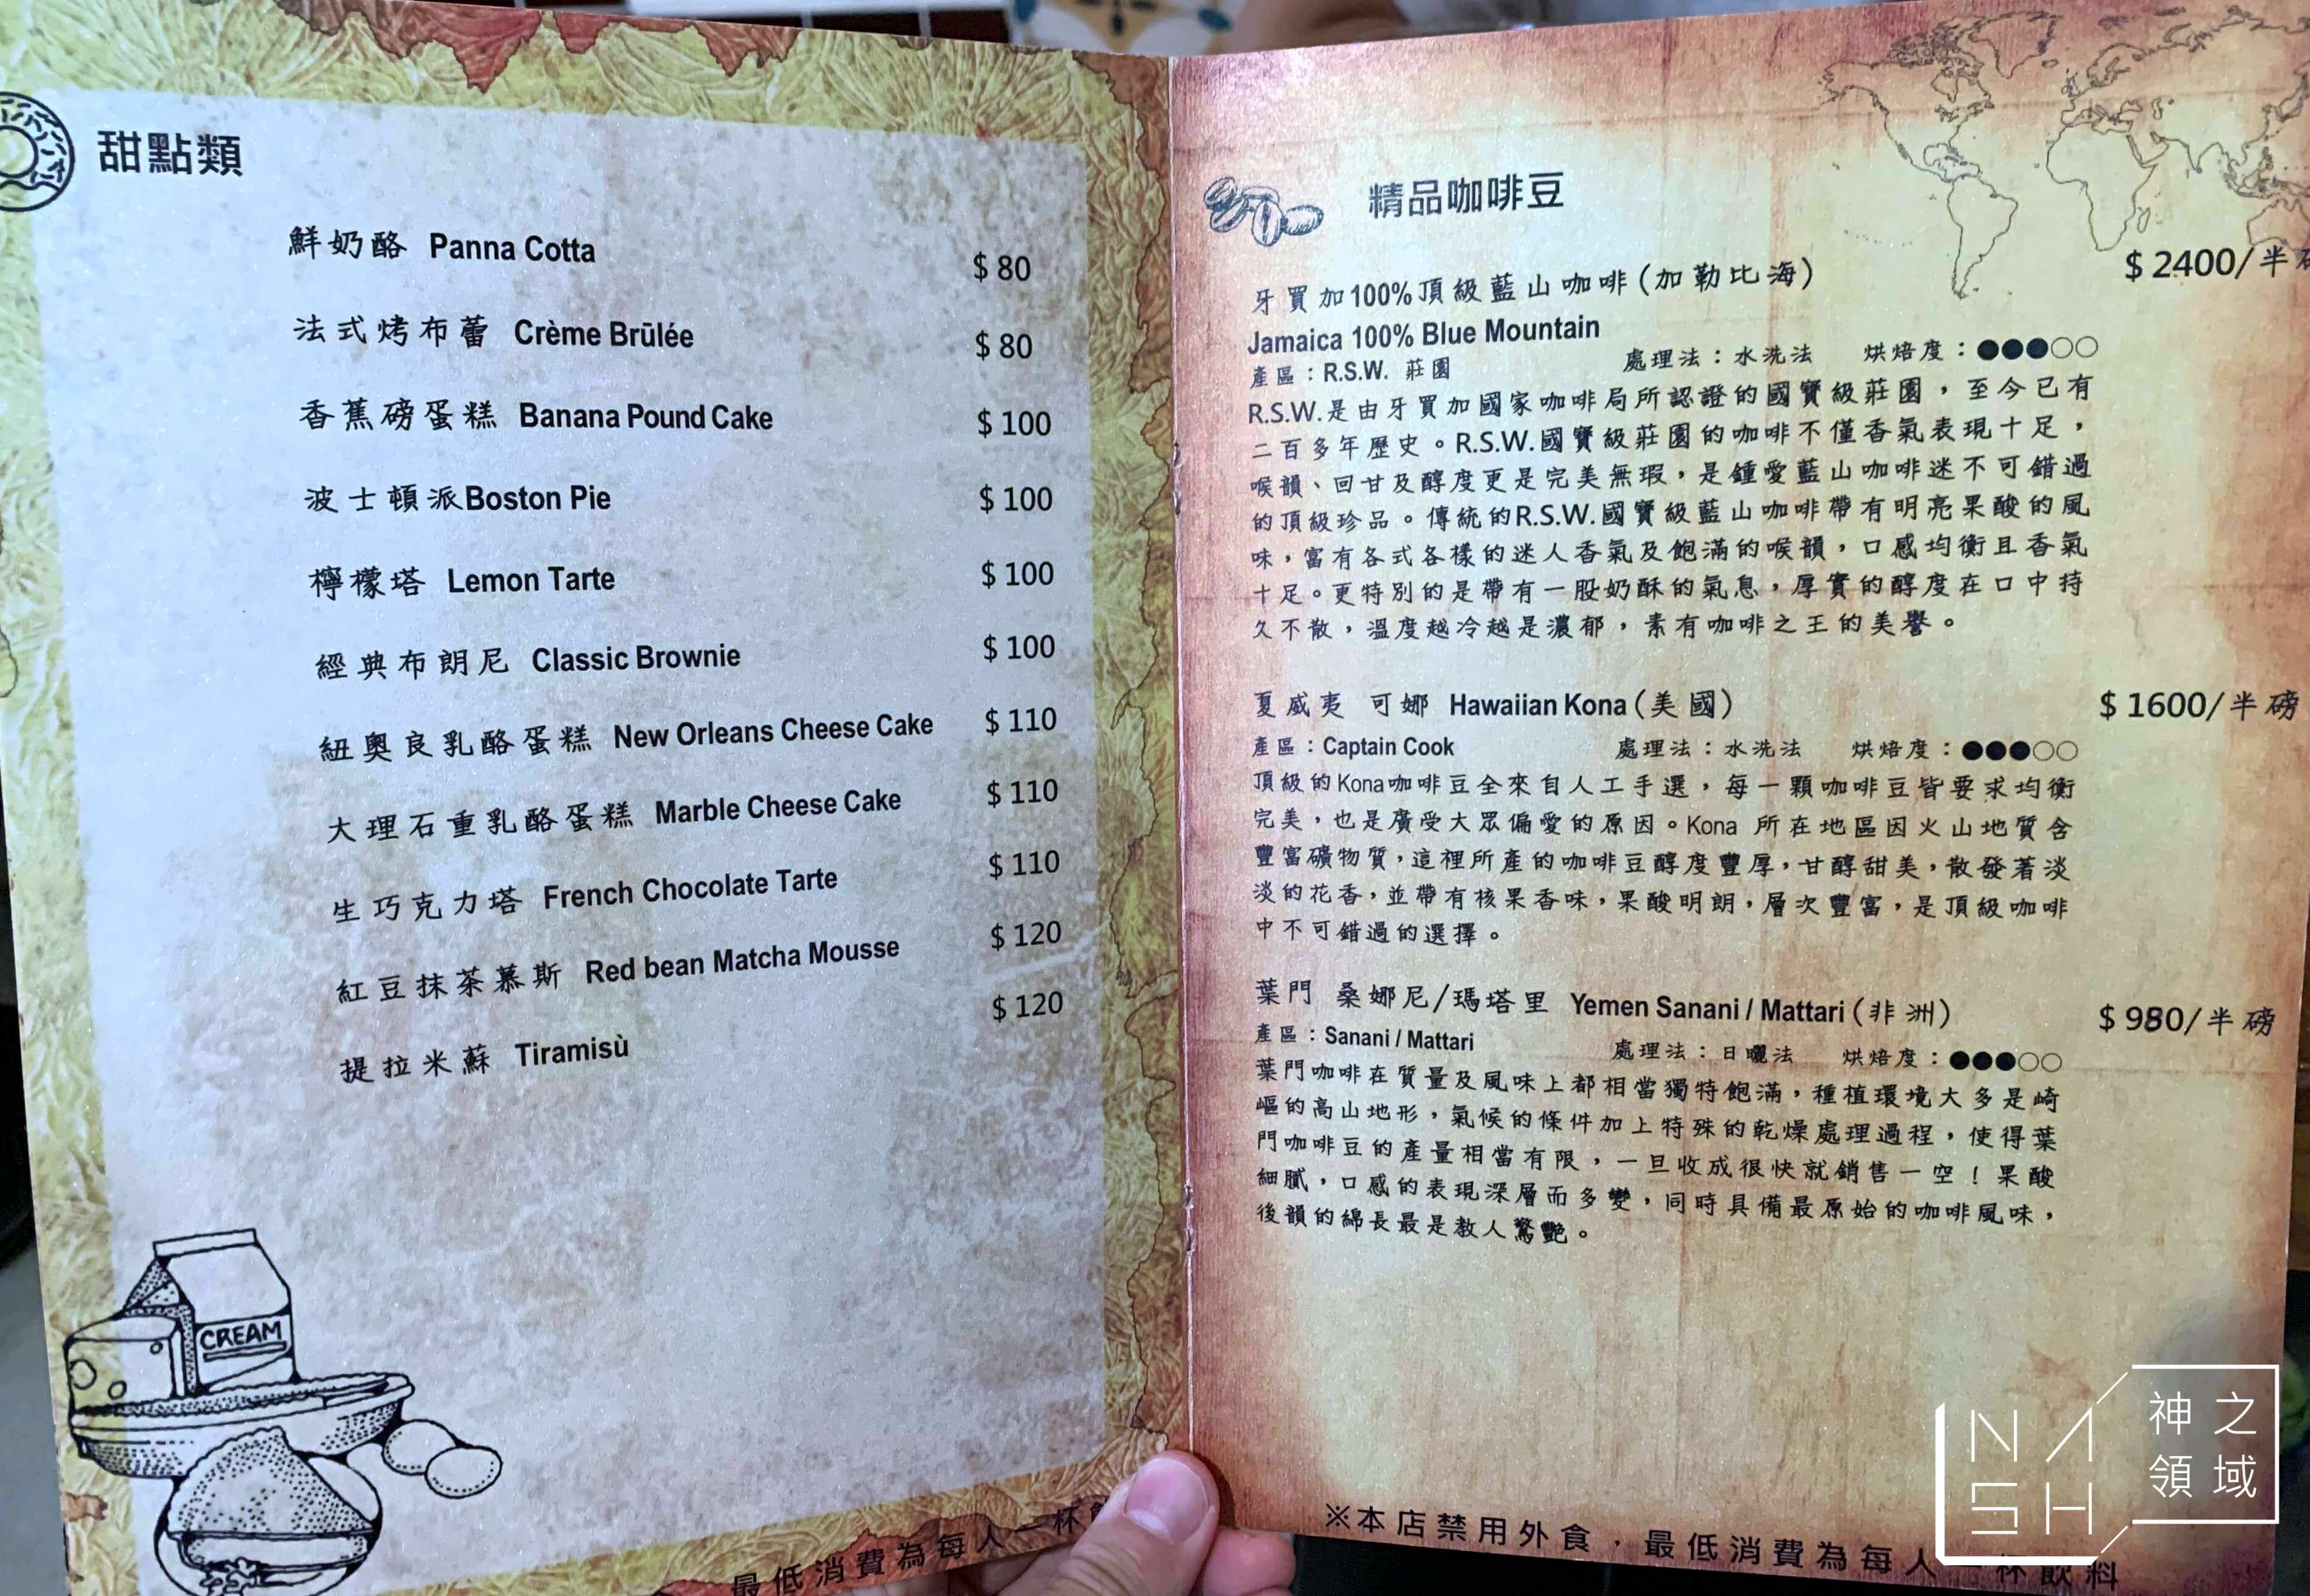 甜點類
鮮奶酪 Panna Cotta $80
法式烤布蕾 Crème Brūlée $80
香蕉磅蛋糕 Banana Pound Cake $100
波士頓派Boston Pie $100
檸檬塔 Lemon Tarte $100
經典布朗尼 Classic Brownie $100
紐奧良乳酪蛋糕 New Orleans Cheese Cake $110
大理石重乳酪蛋糕 Marble Cheese Cake $110
生巧克力塔 French Chocolate Tarte $110
紅豆抹茶慕斯 Red bean Matcha Mousse $120
提拉米蘇 Tiramisù $120
CREAM
最低消費為每人一杯
精品咖啡豆
牙買加100%頂級藍山咖啡(加勒比海) $2400/半
Jamaica 100% Blue Mountain
產區：R.S.W. 莊園 處理法：水洗法 烘焙度：●●●○○
R.S.W.是由牙買加國家咖啡局所認證的國寶級莊園，至今已有
二百多年歷史。R.S.W.國寶級莊園的咖啡不僅香氣表現十足，
喉韻、回甘及醇度更是完美無瑕，是鍾愛藍山咖啡迷不可錯過
的頂級珍品。傳統的R.S.W.國寶級藍山咖啡帶有明亮果酸的風
味，富有各式各樣的迷人香氣及飽滿的喉韻，口感均衡且香氣
十足。更特別的是帶有一股奶酥的氣息，厚實的醇度在口中持
久不散，溫度越冷越是濃郁，素有咖啡之王的美譽。
夏威夷 可娜 Hawaiian Kona(美國) $1600/半磅
產區：Captain Cook 處理法：水洗法 烘焙度：●●●○○
頂級的Kona咖啡豆全來自人工手選，每一顆咖啡豆皆要求均衡
完美，也是廣受大眾偏愛的原因。Kona 所在地區因火山地質含
豐富礦物質，這裡所產的咖啡豆醇度豐厚，甘醇甜美，散發著淡
淡的花香，並帶有核果香味，果酸明朗，層次豐富，是頂級咖啡
中不可錯過的選擇。
葉門 桑娜尼/瑪塔里 Yemen Sanani / Mattari(非洲) $980/半磅
產區：Sanani / Mattari 處理法：日曬法 烘焙度：●●●○○
葉門咖啡在質量及風味上都相當獨特飽滿，種植環境大多是崎
嶇的高山地形，氣候的條件加上特殊的乾燥處理過程，使得葉
門咖啡豆的產量相當有限，一旦收成很快就銷售一空！果酸
細膩，口感的表現深層而多變，同時具備最原始的咖啡風味，
後韻的綿長最是教人驚艷。
※本店禁用外食，最低消費為每人一杯飲料
NASH
神之
領域